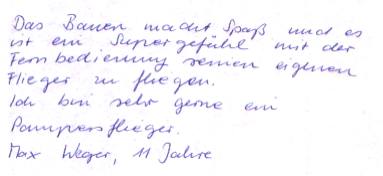 Das Bauen macht Spaß und es
ist ein Supergefühl mit der
Fernbedienung seinen eigenen
Flieger zu fliegen.
Ich bin sehr gerne ein
Pampersflieger.
Max Weger, 11 Jahre